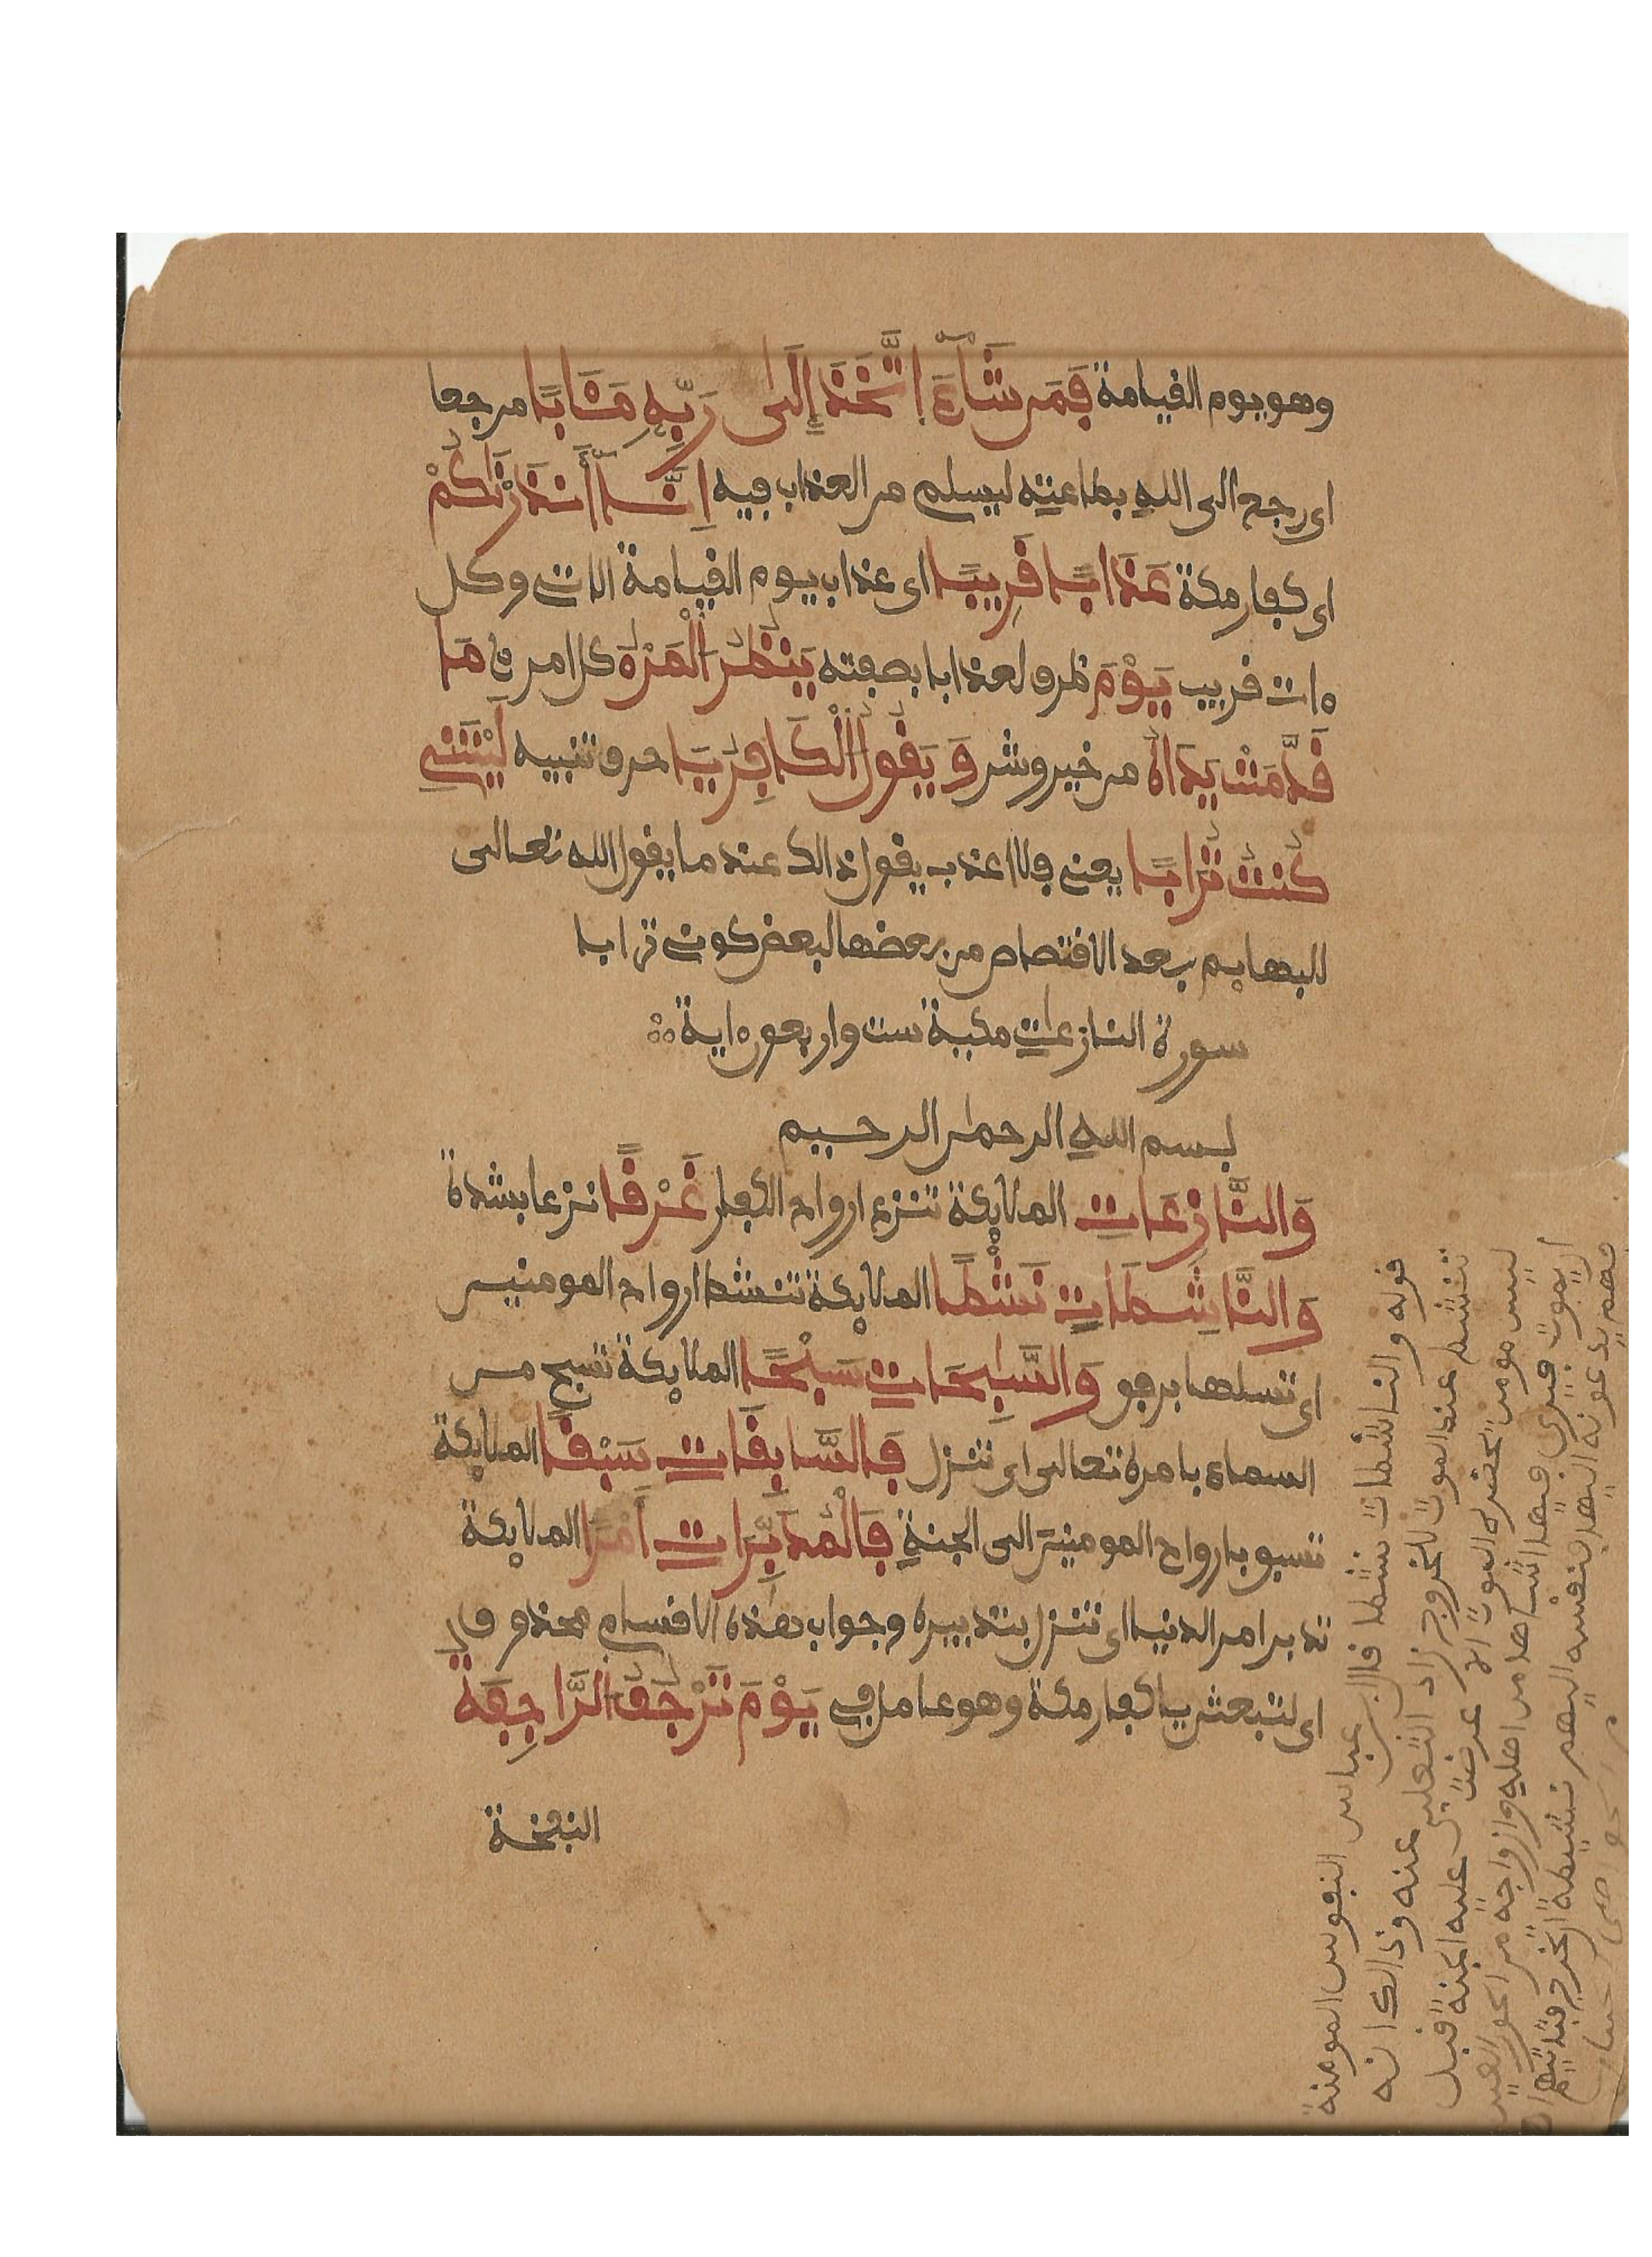 وهو يوم القيامة فَمَن شَآءَ اتَّخَذَ إِلَىٰ رَبِّهِ مَـَٔابًا مرجعا
اى رجع الى الله بطاعته ليسلم من العذاب فيه اِنَّآ أَنذَرْنَٰكُمْ
اى كفار مكة عَذَابًا قَرِيبًا اى عذاب يوم القيامة الاتى وكل
ءات قريب يَوْمَ ظرف لعذابا بصفته يَنظُرُ الْمَرْءُ كل امرئ مَا
قَدَّمَتْ يَدَاهُ من خير وشر وَيَقُولُ الْكَافِرُ يَا حرف تنبيه لَيْتَنِي
كُنتُ تُرَابًا يعنى فلا اعذب يقول ذالك عند ما يقول الله تعالى
للبهايم بعد الاقتصاص من بعضها لبعض كونى ترابا
سورة النازعات مكية ست واربعون ءاية
بسم الله الرحمٰن الرحيم
وَالنَّازِعَاتِ الملايكة تنزع ارواح الكفار غَرْقًا نزعا بشدة
وَالنَّاشِطَاتِ نَشْطًا الملايكة تنشط ارواح المومنين
اى تسلها برفق وَالسَّابِحَاتِ سَبْحًا الملايكة تسبح من
السماء بامره تعالى اى تنزل فَالسَّابِقَاتِ سَبْقًا الملايكة
تسبق بارواح المومنين الى الجنة فَالْمُدَبِّرَاتِ أَمْرًا الملايكة
تدبر امر الدنيا اى تنزل بتدبيره وجواب هٰذه الاقسام محذوف
اى لتبعثن يا كفار مكة وهو عامل فى يَوْمَ تَرْجُفُ الرَّاجِفَةُ
النفخة
قوله والناشطات نشطا قال ابن عباس النفوس المومنة
تنشط عند الموت للخروج زاد الثعلبى عنه وذالك انه
ليس مومن يحضره الموت الا عرضت عليه الجنة قبل
ان يموت فيرى فيها اشباها من اهله وازواجه من الحور العين
فهم يدعونه اليها فنفسه اليهم نشيطة ان تخرج فتاتيهم